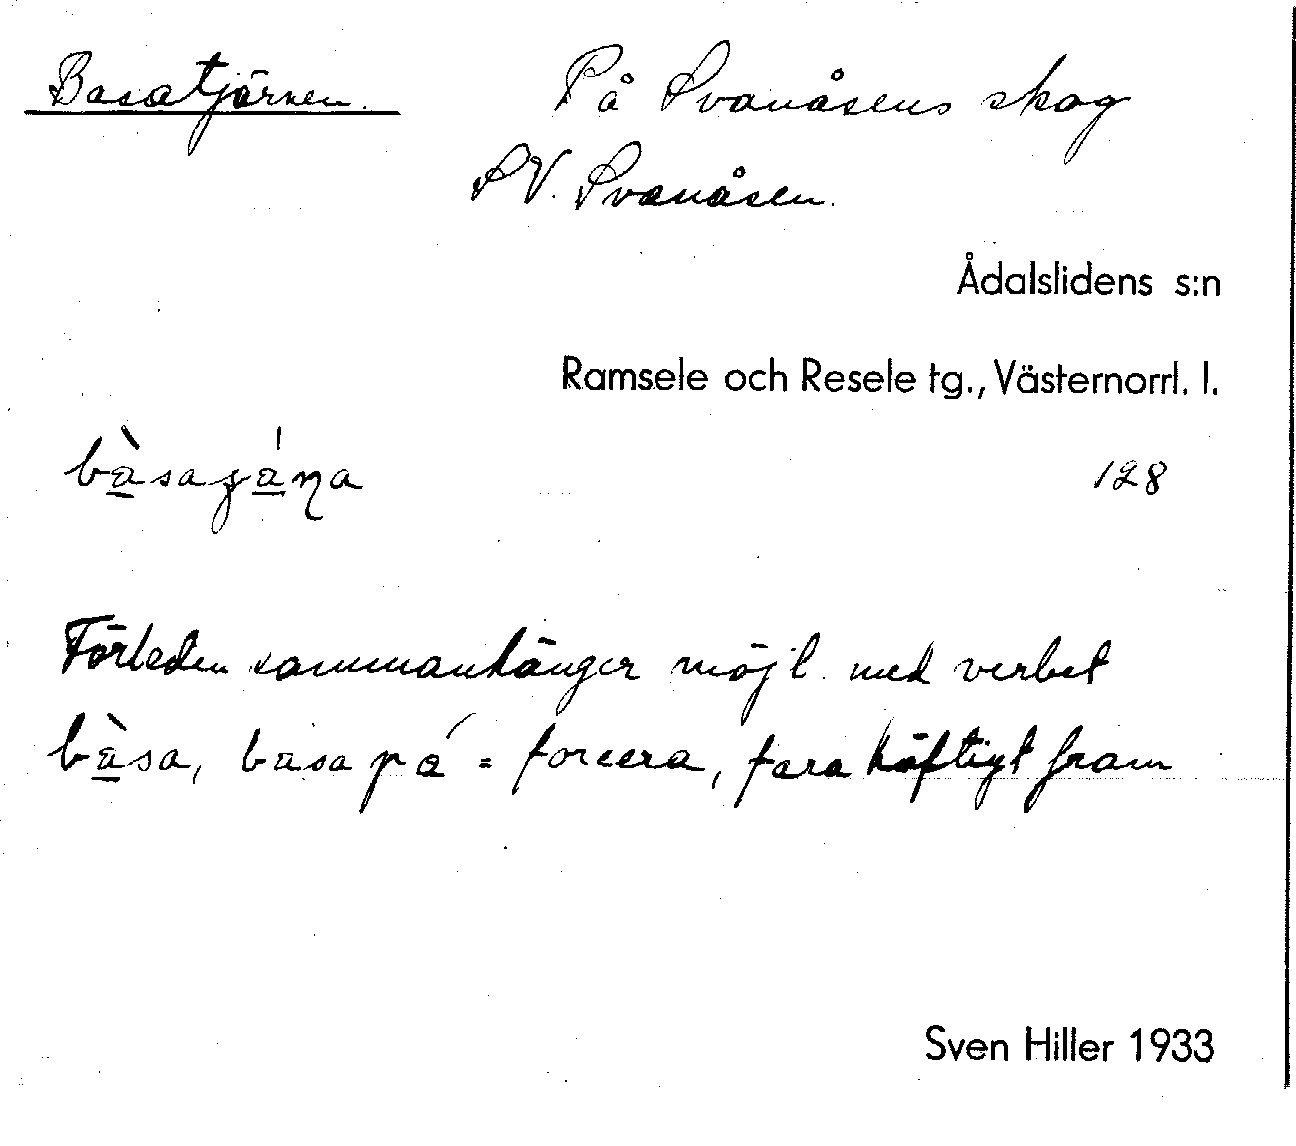 Basatjärnen. På Svanåsens skog
SV. Svanåsen.
Ådalslidens s:n
Ramsele och Resele tg., Västernorrl. l.
bàsaʒáɳa 128
Förleden sammanhänger möjl. med verbet
bàsa, basa pǻ = forcera, fara häftigt fram
Sven Hiller 1933